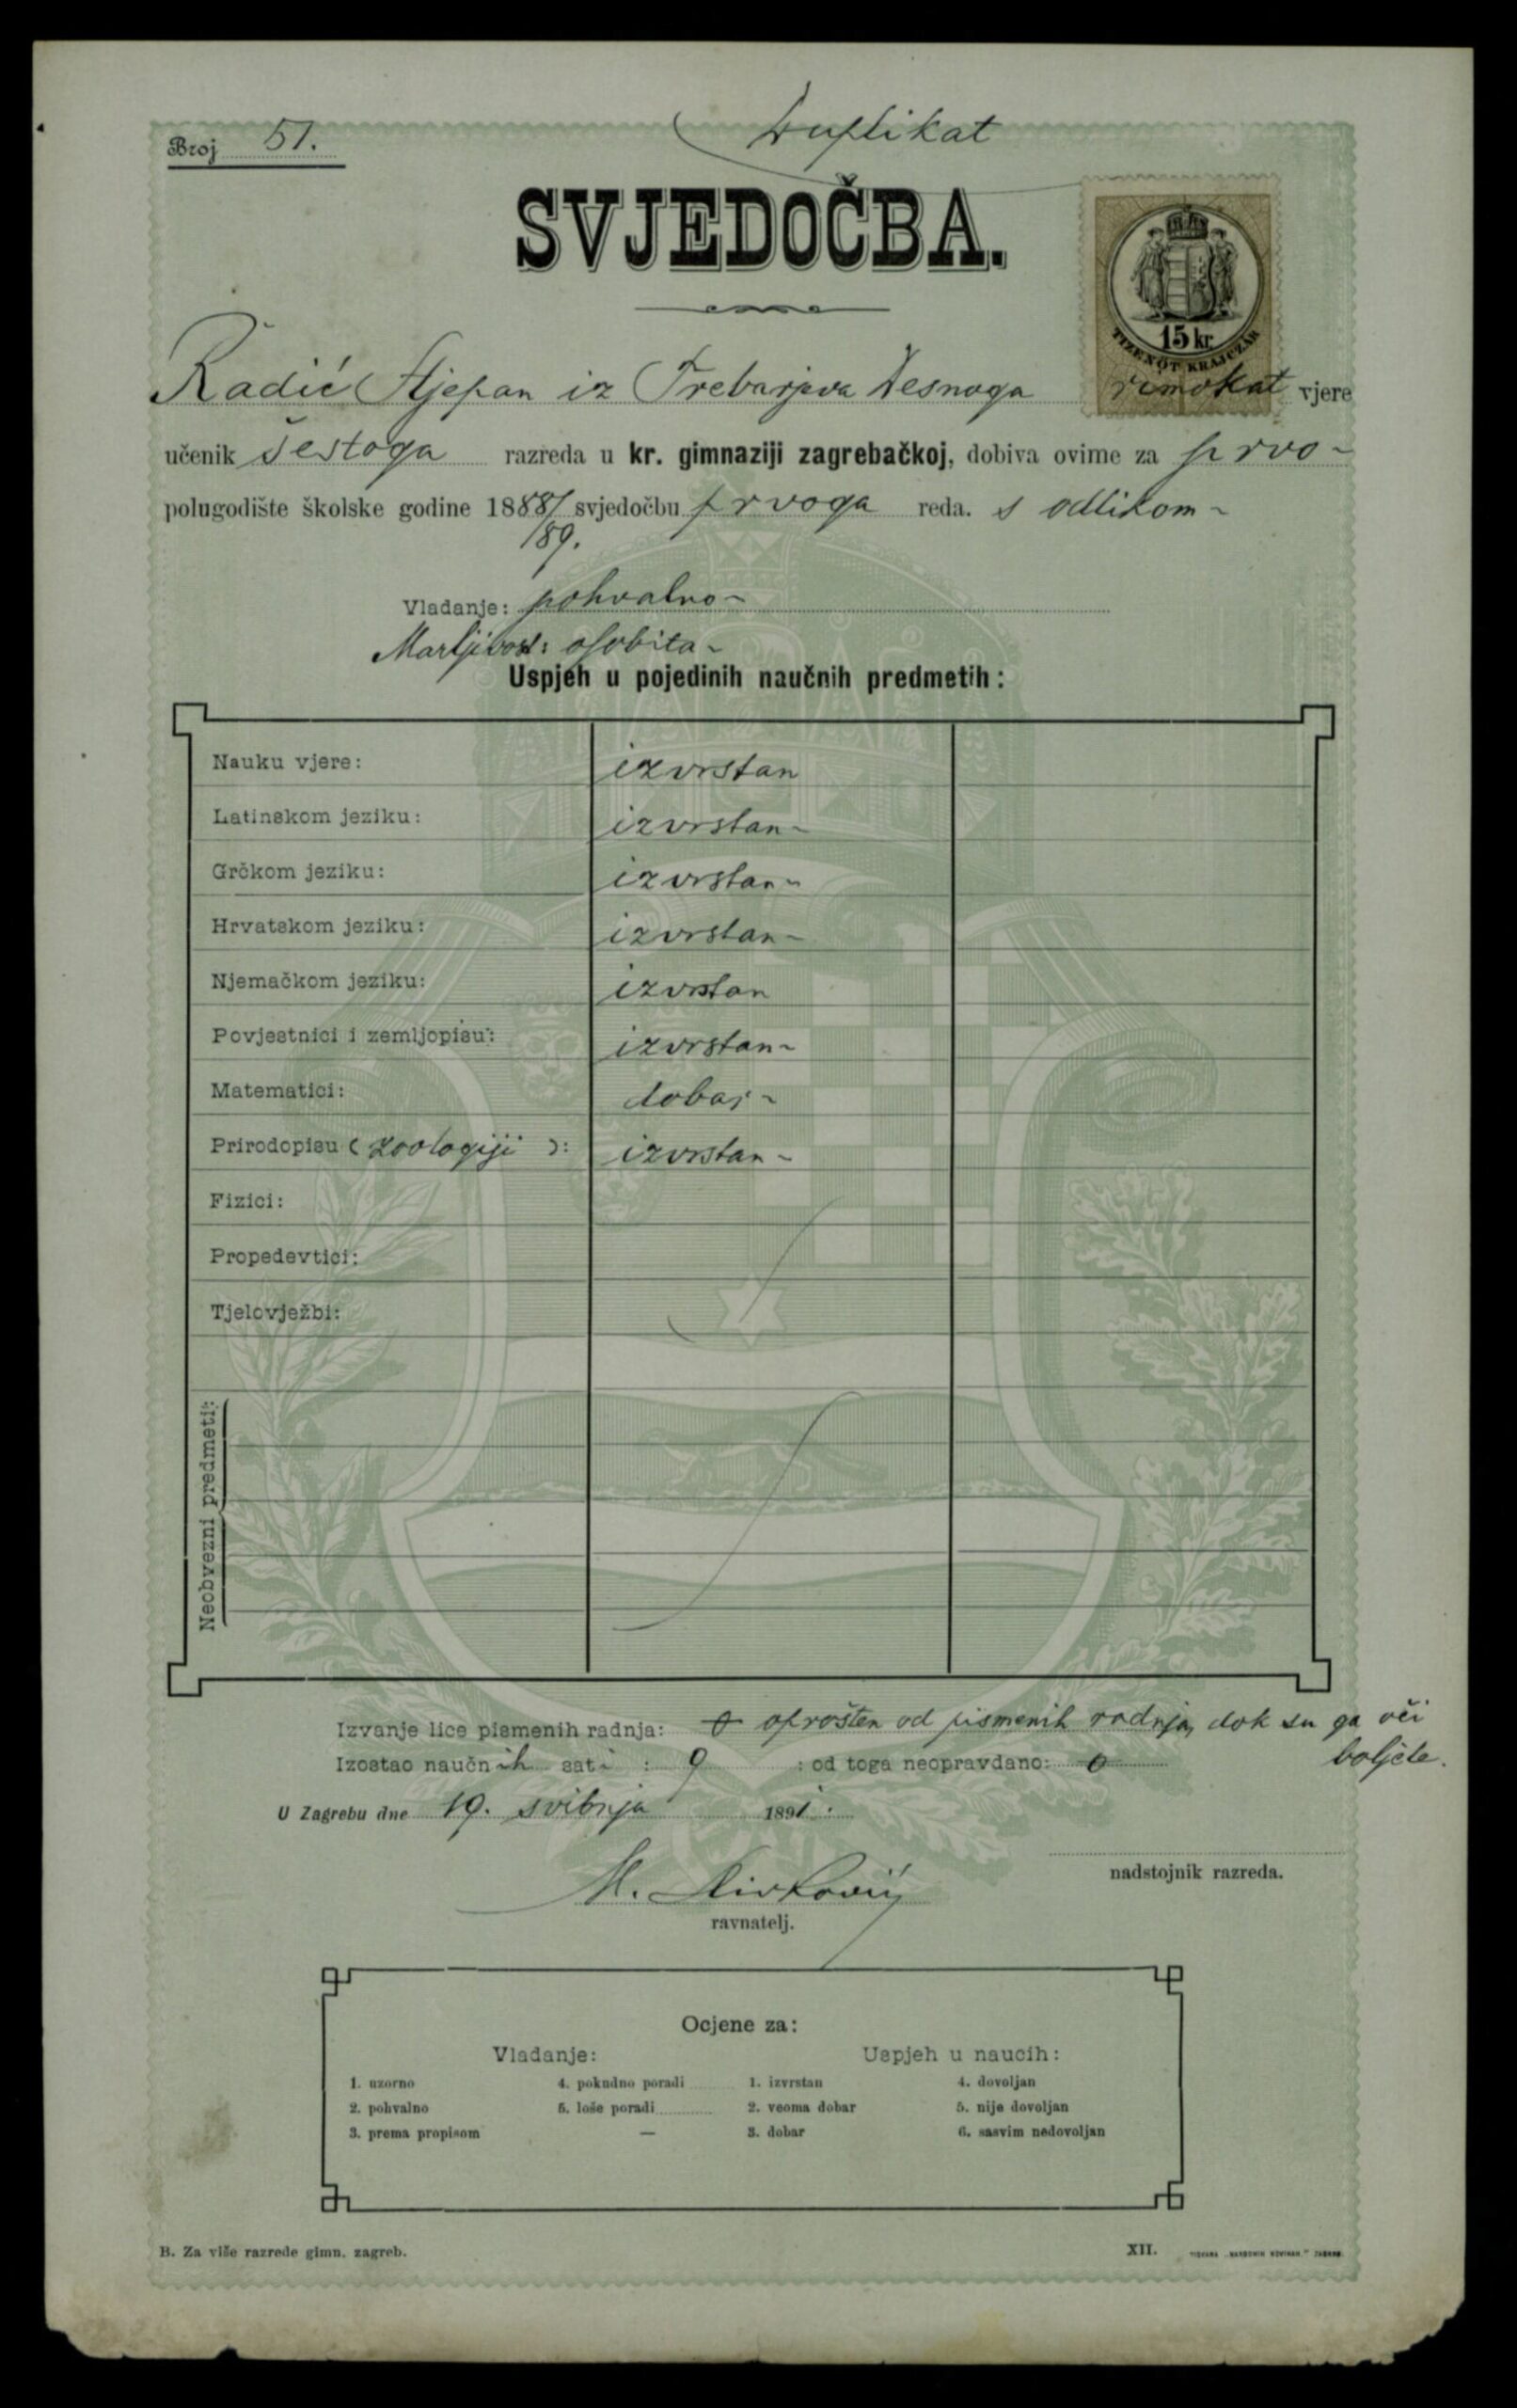 Duplikat
Broj 51.
SVJEDOČBA.
15 kr.
TIZENÖT KRAJCZÁR
Radić Stjepan iz Trebarjeva Desnoga rimokat vjere
učenik šestoga razreda u kr. gimnaziji zagrebačkoj, dobiva ovime za prvo-
polugodište školske godine 1888/ svjedočbu prvoga reda. s odlikom-
/89.
Vladanje: pohvalno-
Marljivost: osobita-
Uspjeh u pojedinih naučnih predmetih:
Nauku vjere: izvrstan
Latinskom jeziku: izvrstan-
Grčkom jeziku: izvrstan-
Hrvatskom jeziku: izvrstan-
Njemačkom jeziku: izvrstan
Povjestnici i zemljopisu: izvrstan-
Matematici: dobar-
Prirodopisu (zoologiji): izvrstan-
Fizici:
Propedevtici:
Tjelovježbi:
Neobvezni predmeti:
Izvanje lice pismenih radnja: 0 oprošten od pismenih radnja, dok su ga oči
boljele.
Izostao naučnih sati: 9 : od toga neopravdano: 0
U Zagrebu dne 19. svibnja 1891.
nadstojnik razreda.
ravnatelj.
Ocjene za:
Vladanje: Uspjeh u naucih:
1. uzorno 4. pokudno poradi 1. izvrstan 4. dovoljan
2. pohvalno 5. loše poradi 2. veoma dobar 5. nije dovoljan
3. prema propisom — 3. dobar 6. sasvim nedovoljan
B. Za više razrede gimn. zagreb. XII.